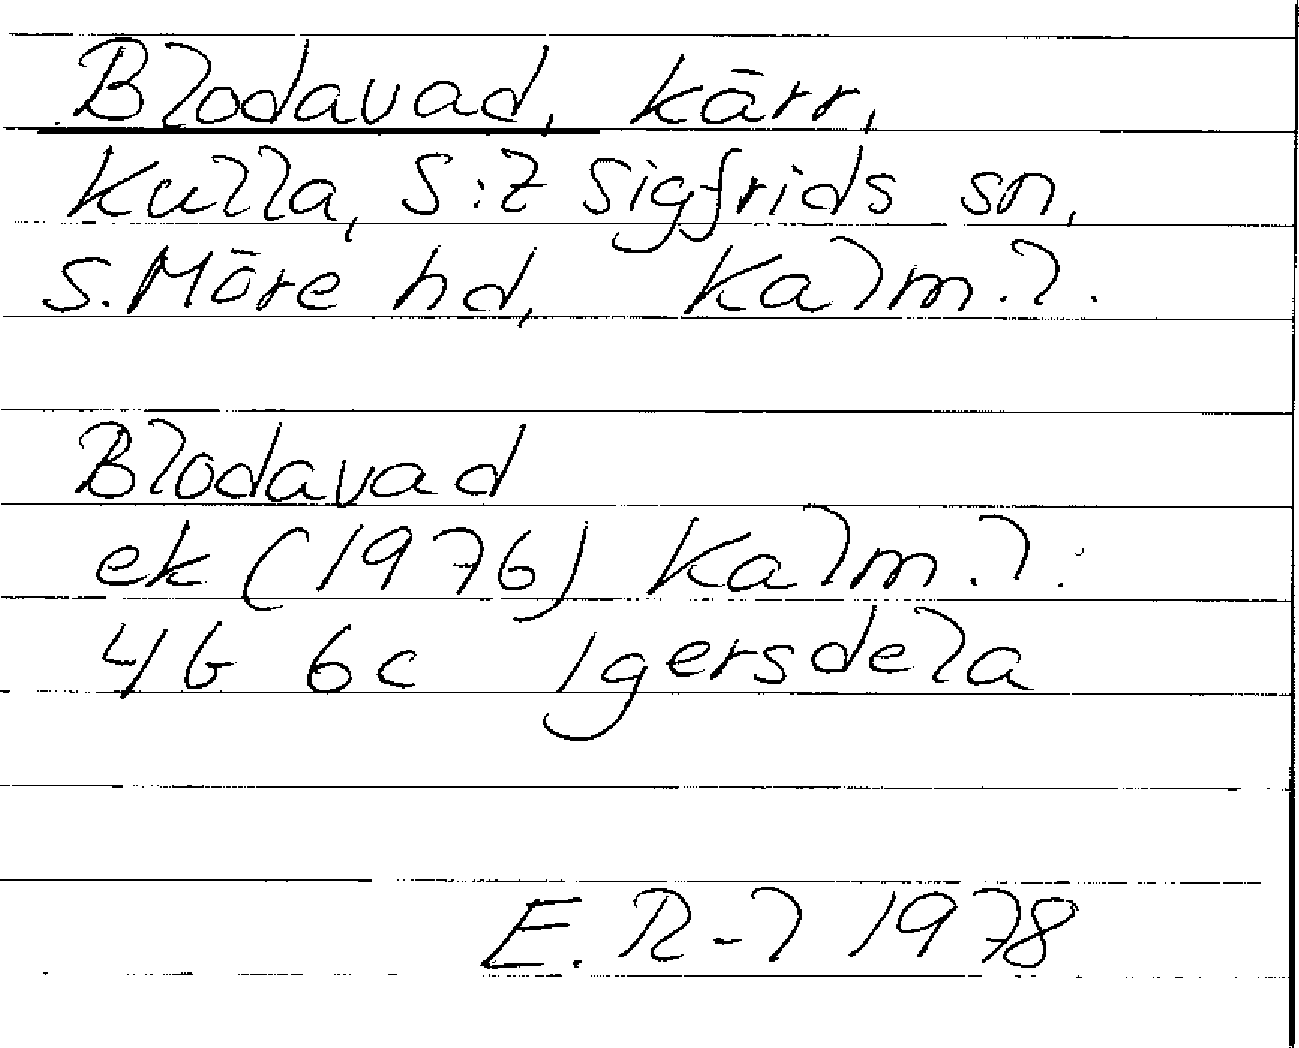 Blodavad, kärr,
Kulla, S:t Sigfrids sn,
S. Möre hd, Kalm. l.
Blodavad
ek (1976) Kalm. l.:
4G 6c Igersdela
E. R-l 1978